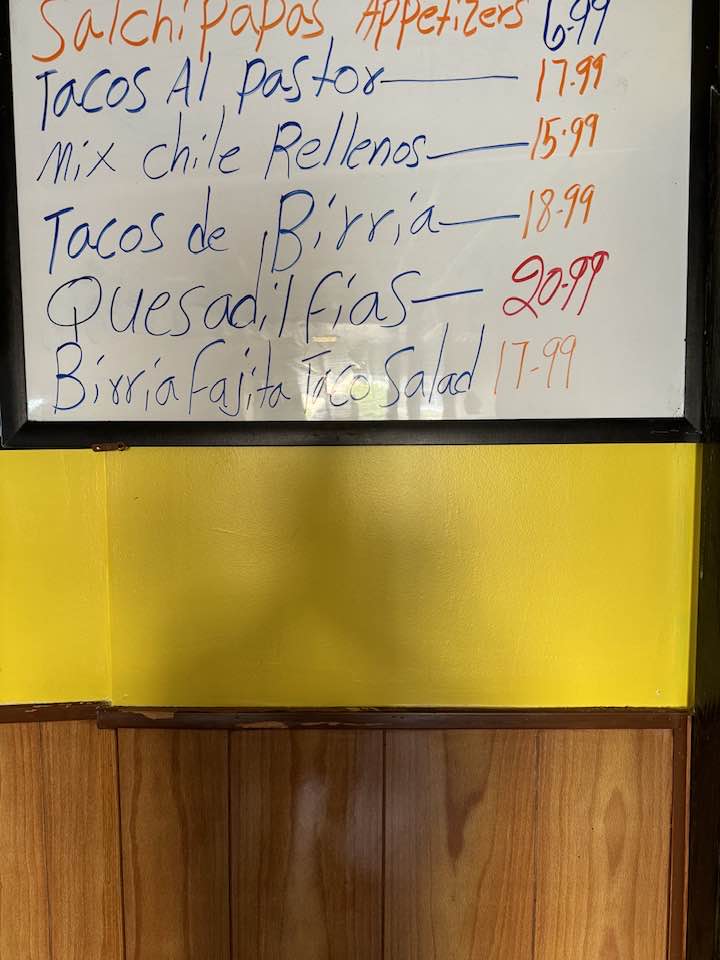 Salchipapas Appetizers 6.99
Tacos Al pastor 17.99
Mix chile Rellenos 15.99
Tacos de Birria 18.99
Quesadilfias 20.99
Birria Fajita Taco Salad 17-99